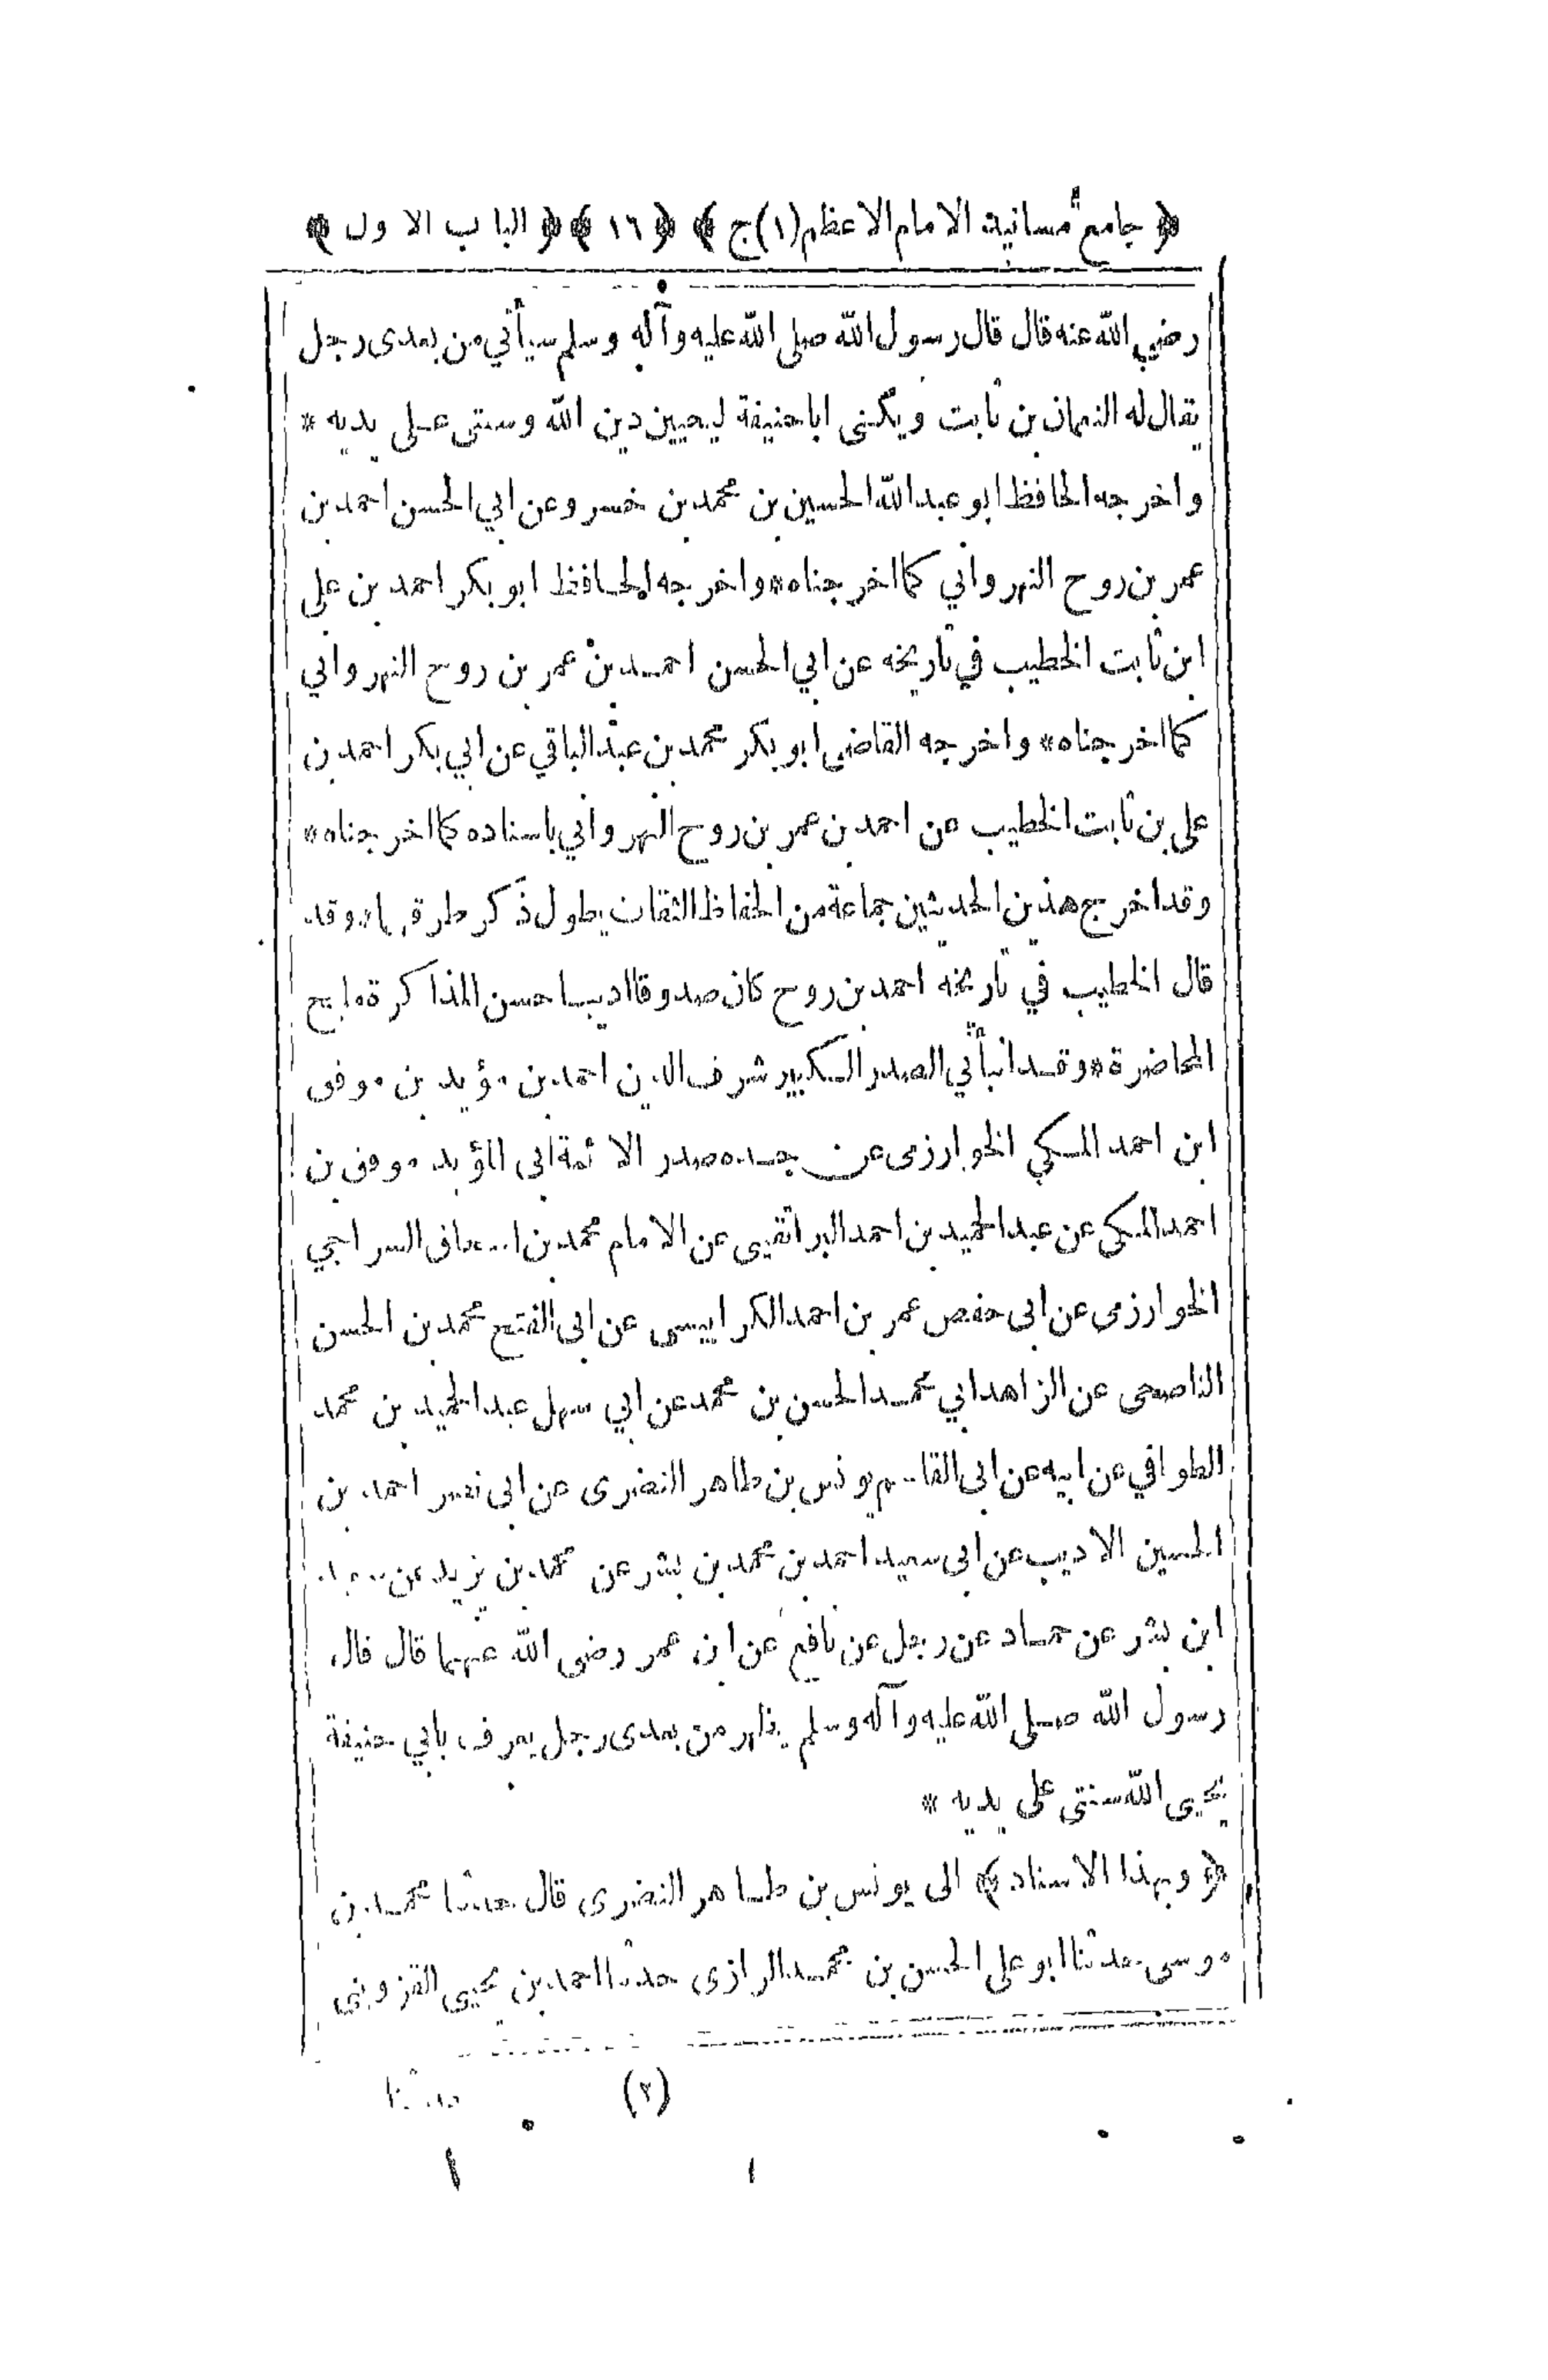 ﴿ جامع مسانيد الامام الاعظم (١) ج ﴾ ﴿ ١٦ ﴾ ﴿ الباب الاول ﴾
رضي الله عنه قال قال رسول الله صلى الله عليه وآله وسلم سيأتي من بعدى رجل
يقال له النعمان بن ثابت ويكنى ابا حنيفة ليحيين دين الله وسنتى على يديه *
واخرجه الحافظ ابو عبد الله الحسين بن محمد بن خسرو عن ابي الحسن احمد بن
عمر بن روح النهرواني كما اخرجناه * واخرجه الحافظ ابو بكر احمد بن على
ابن ثابت الخطيب في تاريخه عن ابي الحسن احمد بن عمر بن روح النهرواني
كما اخرجناه * واخرجه القاضى ابو بكر محمد بن عبد الباقي عن ابي بكر احمد بن
على بن ثابت الخطيب عن احمد بن عمر بن روح النهرواني باسناده كما اخرجناه *
وقد اخرج هذين الحديثين جماعة من الحفاظ الثقات يطول ذكر طرقها * وقد
قال الخطيب في تاريخه احمد بن روح كان صدوقا اديبا حسن المذاكرة مليح
المحاضرة * وقد انبأني الصدر الكبير شرف الدين احمد بن مؤيد بن موفق
ابن احمد المكي الخوارزمى عن جده صدر الائمة ابى المؤيد موفق بن
احمد المكى عن عبد الحميد بن احمد البراتقينى عن الامام محمد بن اسحاق السراجي
الخوارزمى عن ابى حفص عمر بن احمد الكرابيسى عن ابى الفتح محمد بن الحسن
الناصحى عن الزاهد ابي محمد الحسن بن محمد عن ابي سهل عبد الحميد بن محمد
الطوافي عن ابيه عن ابى القاسم يونس بن طاهر النضرى عن ابى نصر احمد بن
الحسين الاديب عن ابى سعيد احمد بن محمد بن بشر عن محمد بن يزيد عن سعيد
ابن بشر عن حماد عن رجل عن نافع عن ابن عمر رضى الله عنهما قال قال
رسول الله صلى الله عليه وآله وسلم يظهر من بعدى رجل يعرف بابي حنيفة
يحيى الله سنتى على يديه *
﴿ وبهذا الاسناد ﴾ الى يونس بن طاهر النضرى قال حدثنا محمد بن
موسى حدثنا ابو على الحسن بن محمد الرازى حدثنا احمد بن يحيى القزوينى
(٢) حدثنا